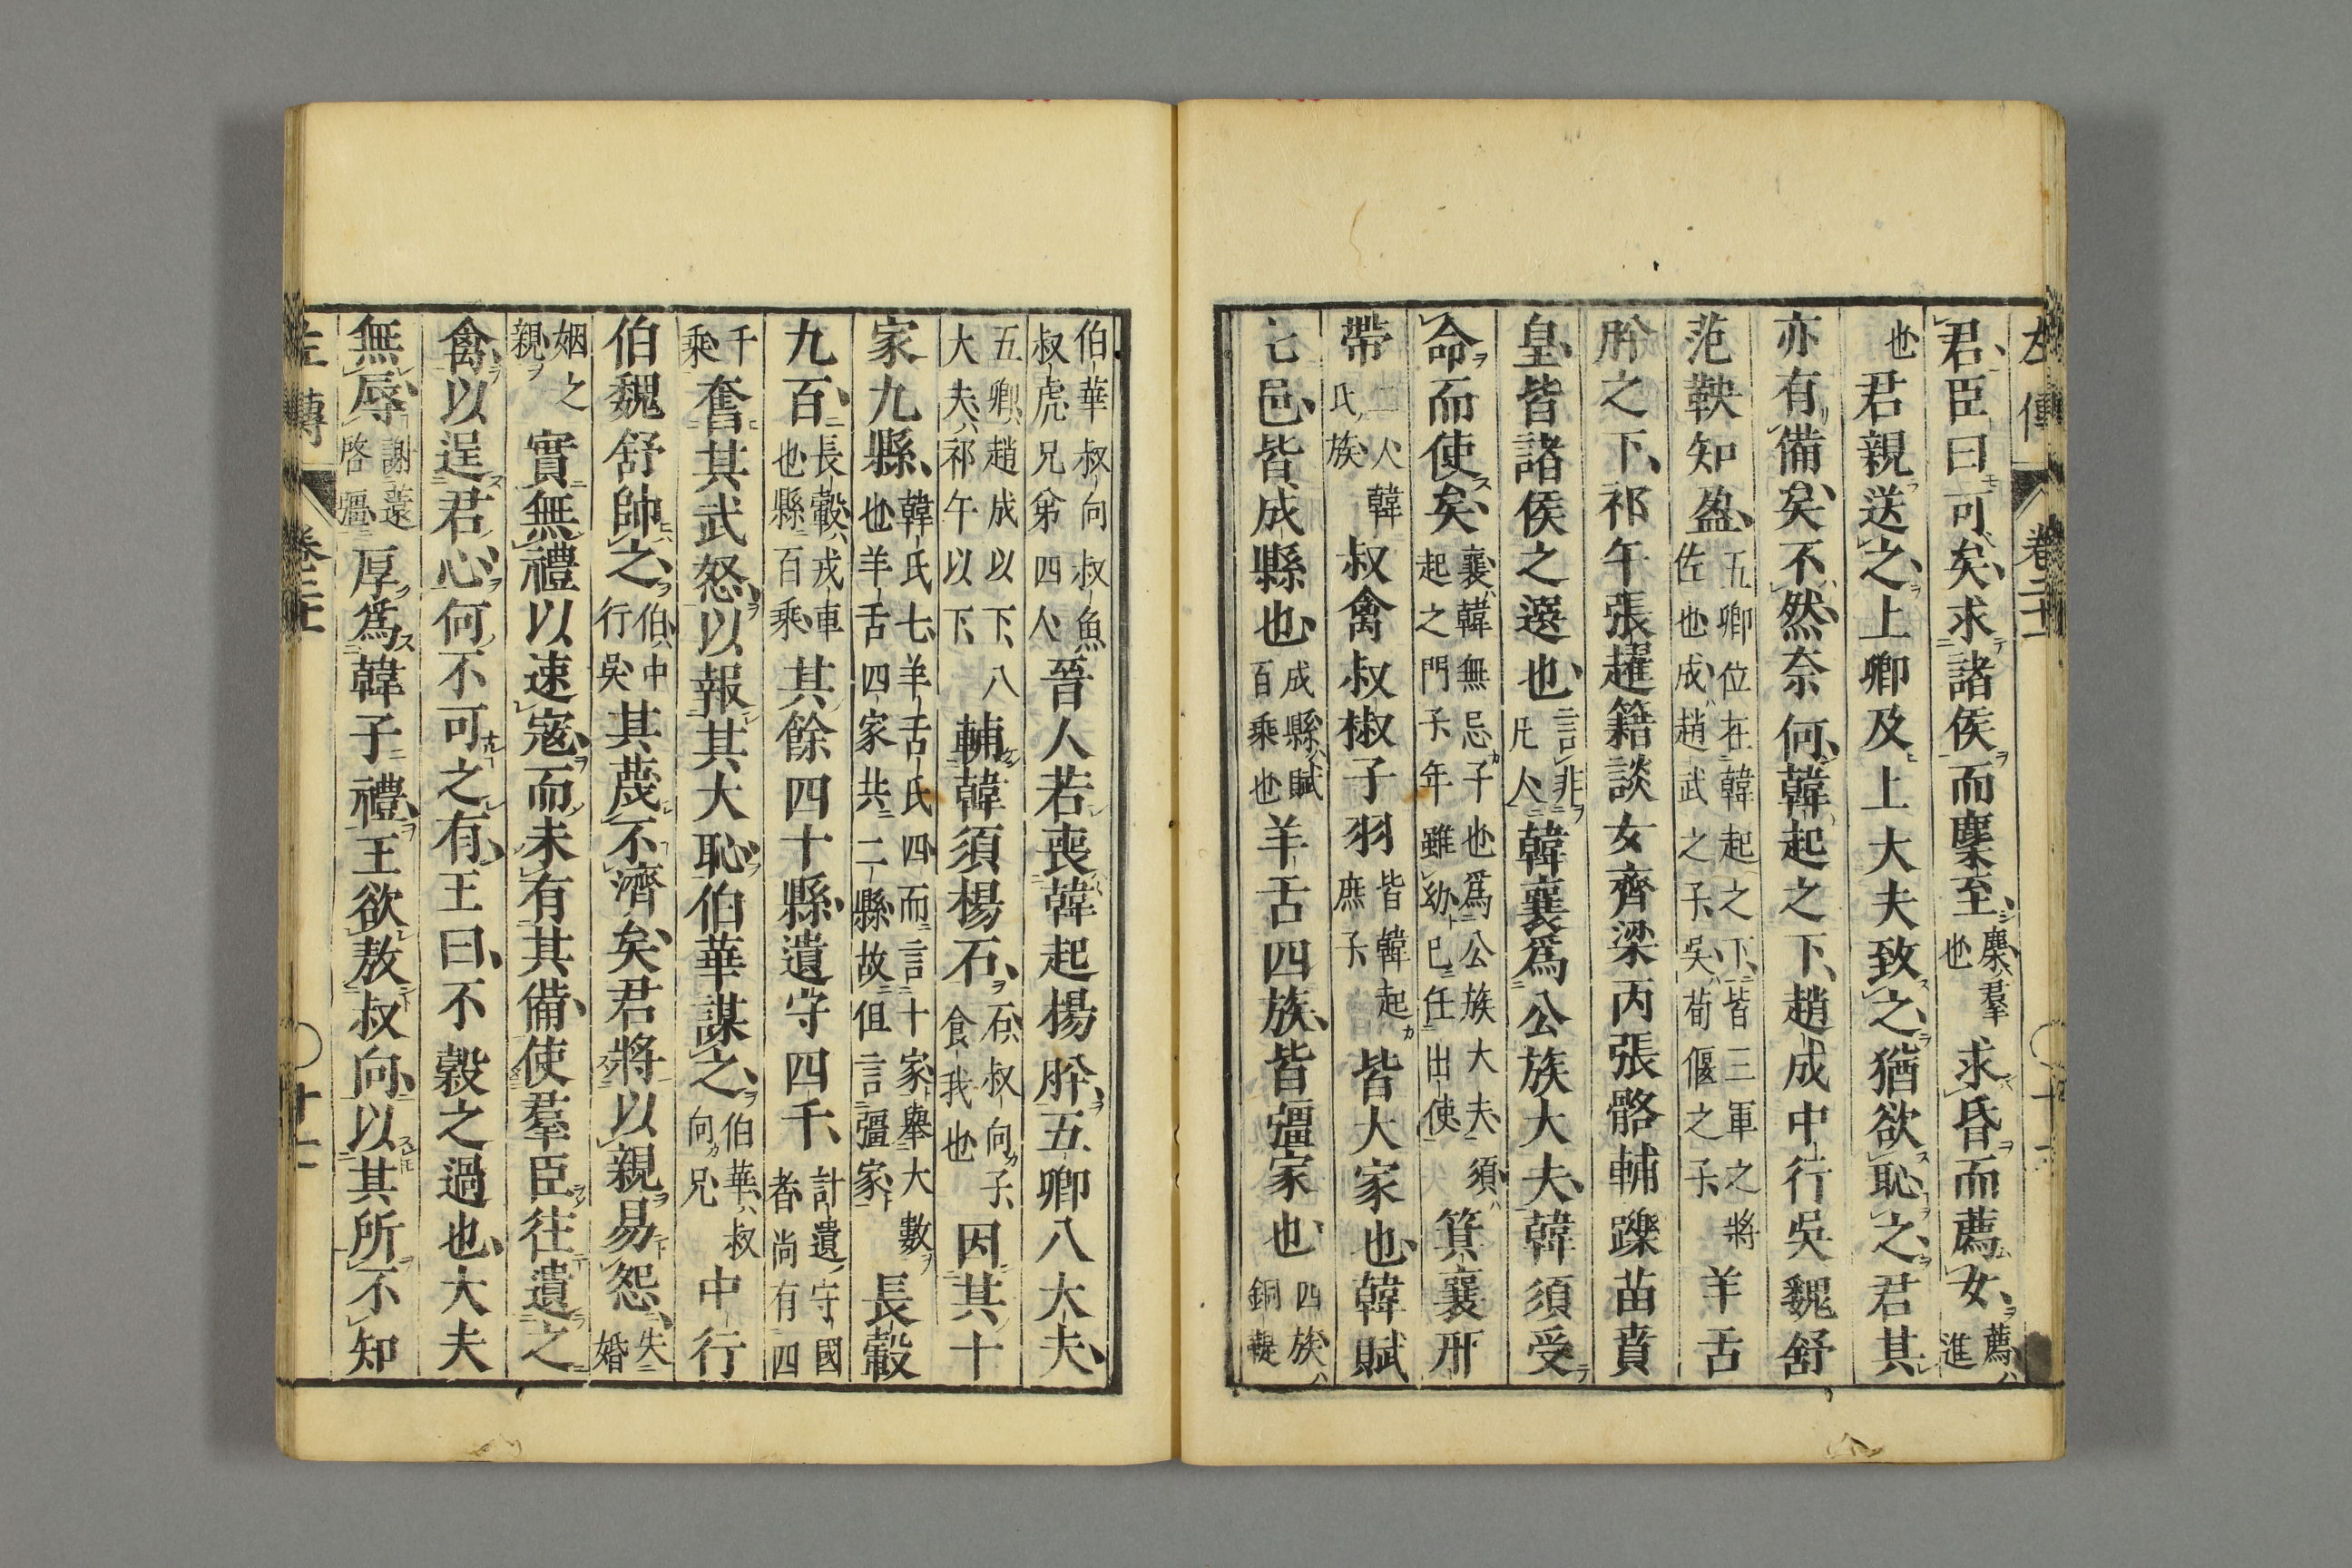 左傳 卷二十一 〇十一
君臣曰可矣求諸侯而麇至麇羣也求昏而薦女薦進
也君親送之上卿及上大夫致之猶欲恥之君其
亦有備矣不然奈何韓起之下趙成中行吳魏舒
范鞅知盈五卿位在韓起之下皆三軍之將佐也成趙武之子吳荀偃之子羊舌
肸之下祁午張趯籍談女齊梁丙張骼輔躒苗賁
皇皆諸侯之選也言非凡人韓襄爲公族大夫韓須受
命而使矣襄韓無忌子也爲公族大夫須起之門子年雖幼已任出使箕襄邢
帶二人韓氏族叔禽叔椒子羽皆韓起庶子皆大家也韓賦
七邑皆成縣也成縣賦百乘也羊舌四族皆彊家也四族銅鞮
伯華叔向叔魚叔虎兄弟四人晉人若喪韓起楊肸五卿八大夫
五卿趙成以下八大夫祁午以下輔韓須楊石石叔向子食我也因其十
家九縣韓氏七羊舌氏四而言十家舉大數也羊舌四家共二縣故但言彊家長轂
九百長轂戎車也縣百乘其餘四十縣遺守四千計遺守國者尚有四
千乘奮其武怒以報其大恥伯華謀之伯華叔向兄中行
伯魏舒帥之伯中行吳其蔑不濟矣君將以親易怨失婚
姻之親實無禮以速寇而未有其備使羣臣往遺之
禽以逞君心何不可之有王曰不穀之過也大夫
無辱謝薳啓彊厚爲韓子禮王欲敖叔向以其所不知
左傳 卷二十一 〇十一